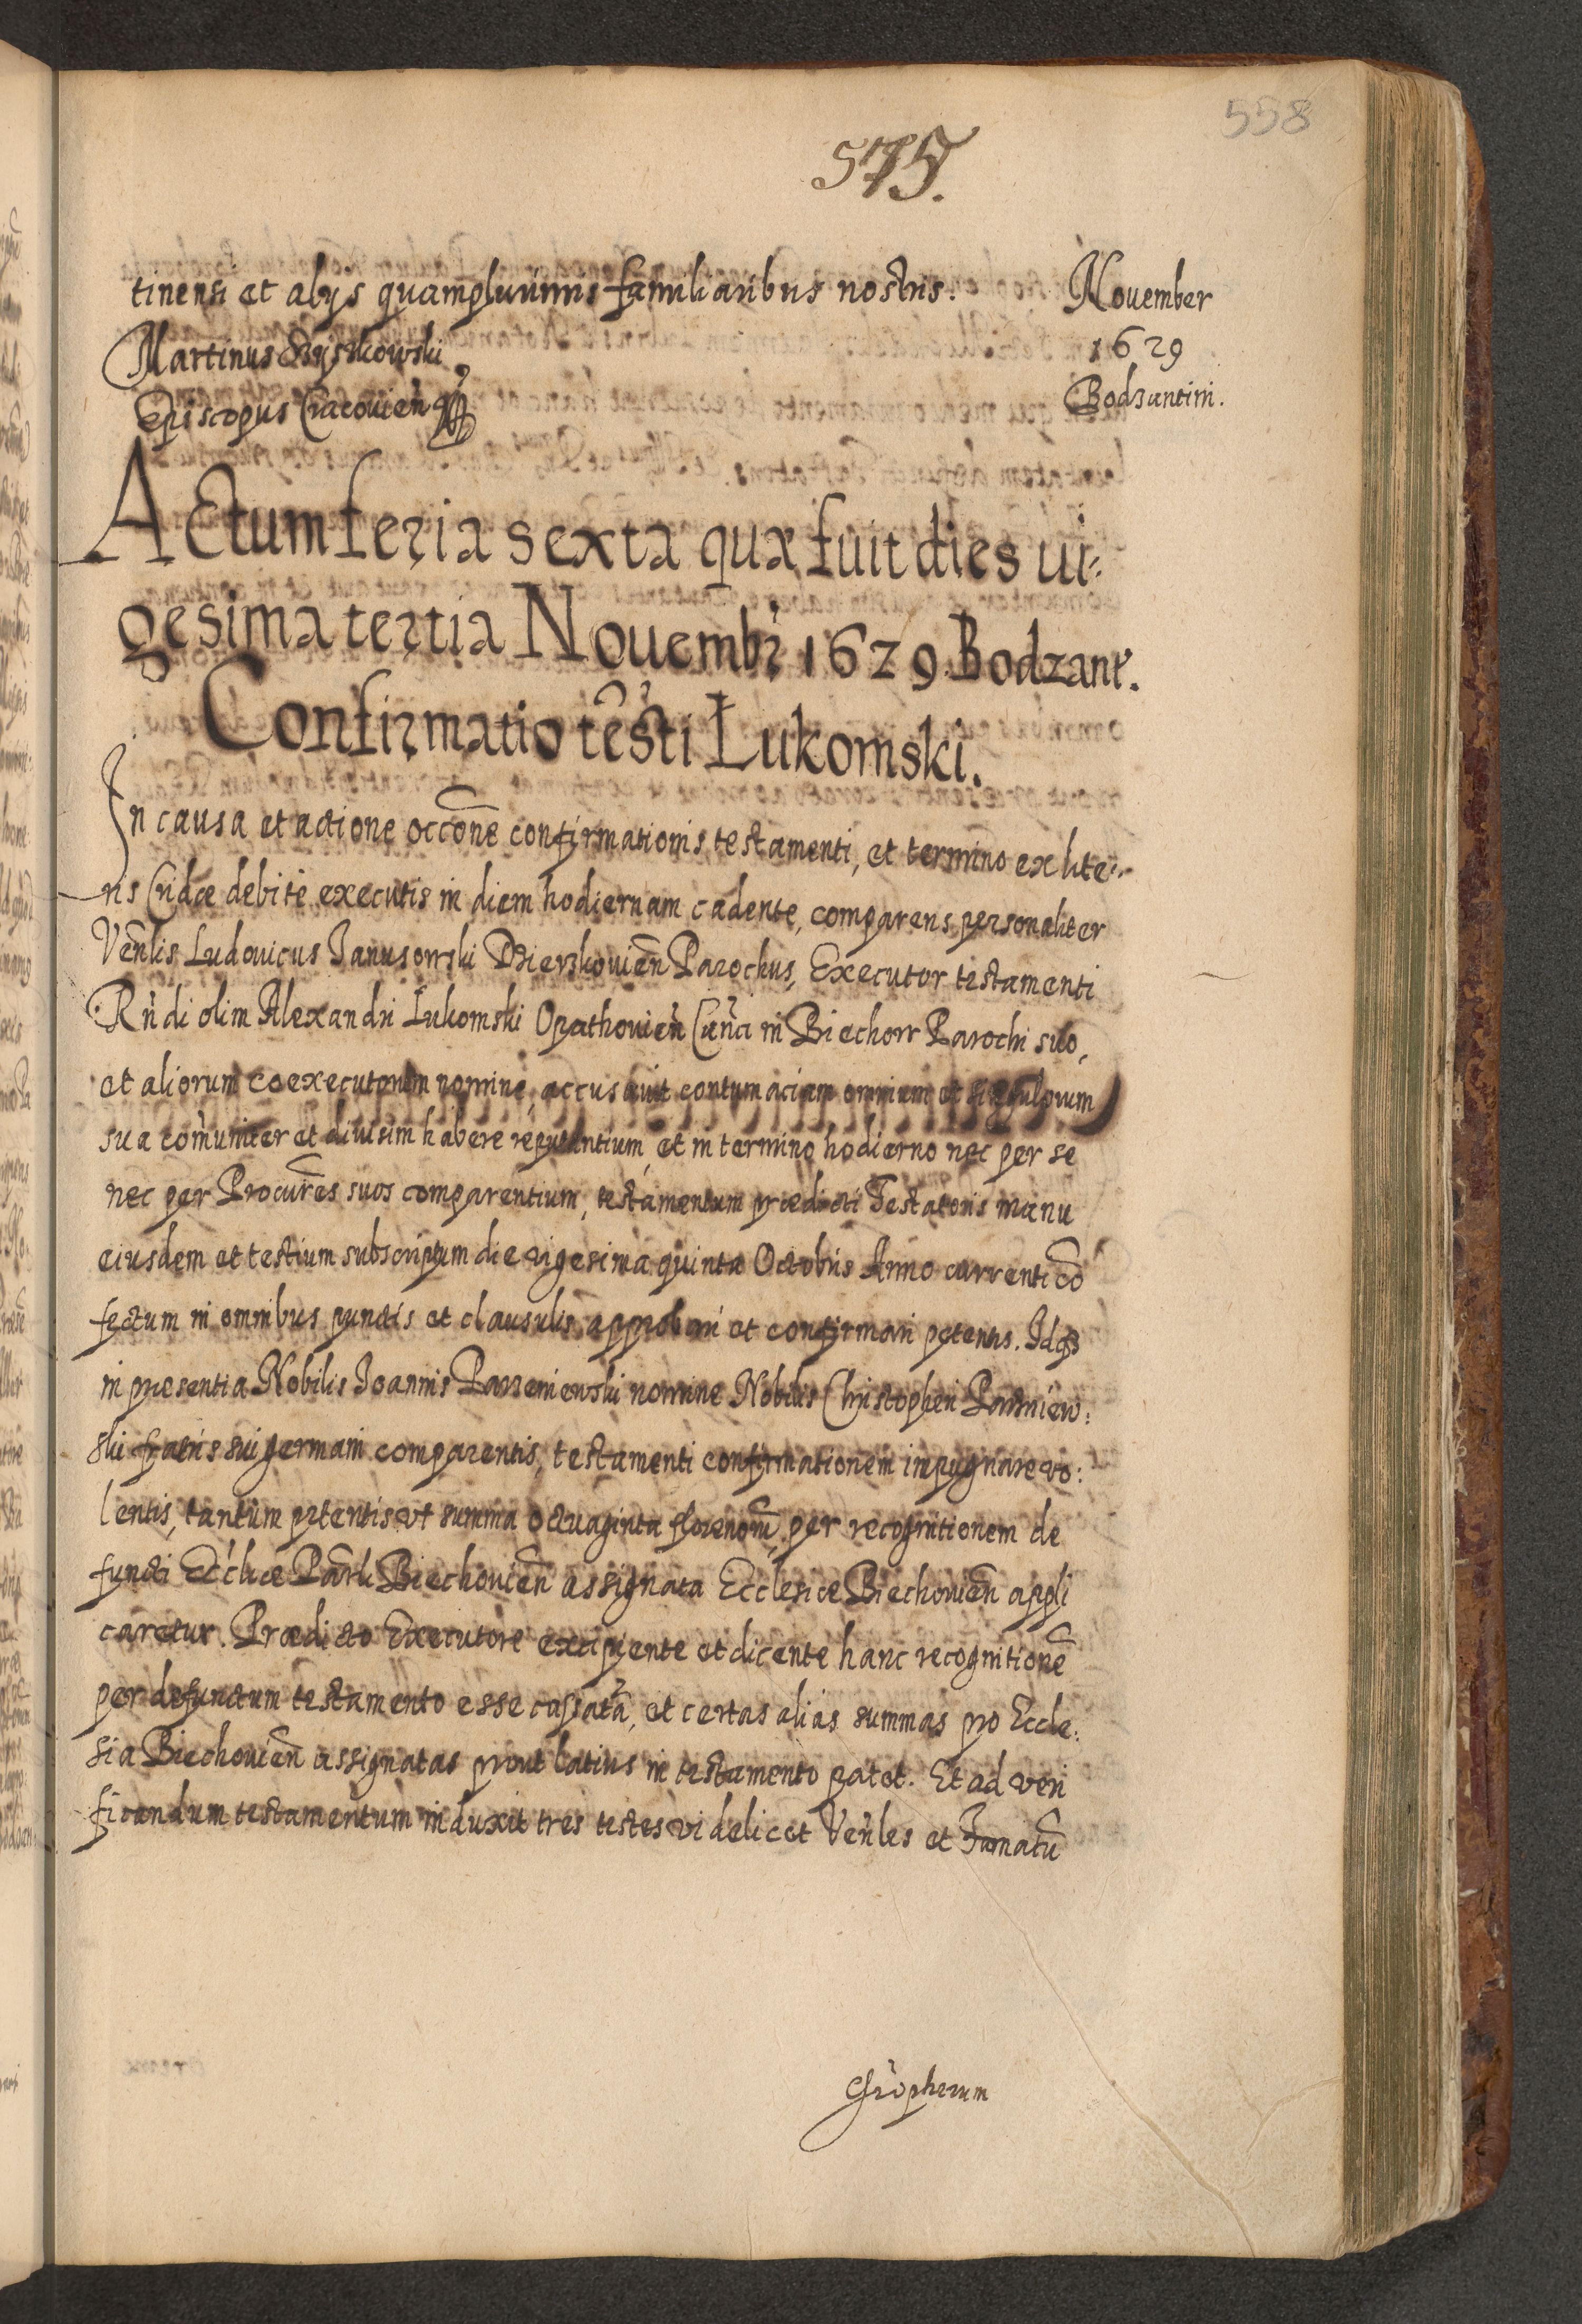 558
575.
tinensi et alijs quamplurimis familiaribus nostris.
November
1629
Bodzantini.
Martinus Szyszkowski
Episcopus Cracovien̄
Actum feria sexta quæ fuit dies ui⸗
gesima tertia Nouembr 1629 Bodzant.
Confirmatio tēsti Łukomski.
In causa et actione occōne confirmationis testamenti, et termino ex lite⸗
ris Cridæ debite executis in diem hodiernam cadente, comparens personaliter
Venlis Ludovicus Janusowski Dzierzkovien̄ Parochus, Executor testamenti
Rndi olim Alexandri Lukomski Opathovien̄ Canci in Biechow Parochi suo,
et aliorum coexecutorum nomine, accusavit contumaciam omnium et singulorum
sua com̄uniter et divisim habere reputantium, et in termino hodierno nec per se
nec per Procūres suos comparentium, testamentum prædicti Testatoris manu
eiusdem et testium subscriptum die vigesima quinta Octobris Anno currenti cō
fectum in omnibus punctis et clausulis approbari et confirmari petentis. Idqз
in præsentia Nobilis Joannis Parzeniewski nomine Nobilis Christopheri Parzniew:
ski fratris sui germani comparentis, testamenti confirmationem impugnare vo:
lentis, tantum petentis vt summa octuaginta florenorū, per recognitionem de
functi Ecclæ Parli Biechovien̄ assignata Ecclesiæ Biechovien̄ appli
caretur. Prædicto Executore excipiente et dicente hanc recognitionē
per defunctum testamento esse cassatā, et certas alias summas pro Eccle:
sia Biechovien̄ assignatas prout latius in testamento patet. Et ad veri
ficandum testamentum induxit tres testes videlicet Ven̄les et Famatū